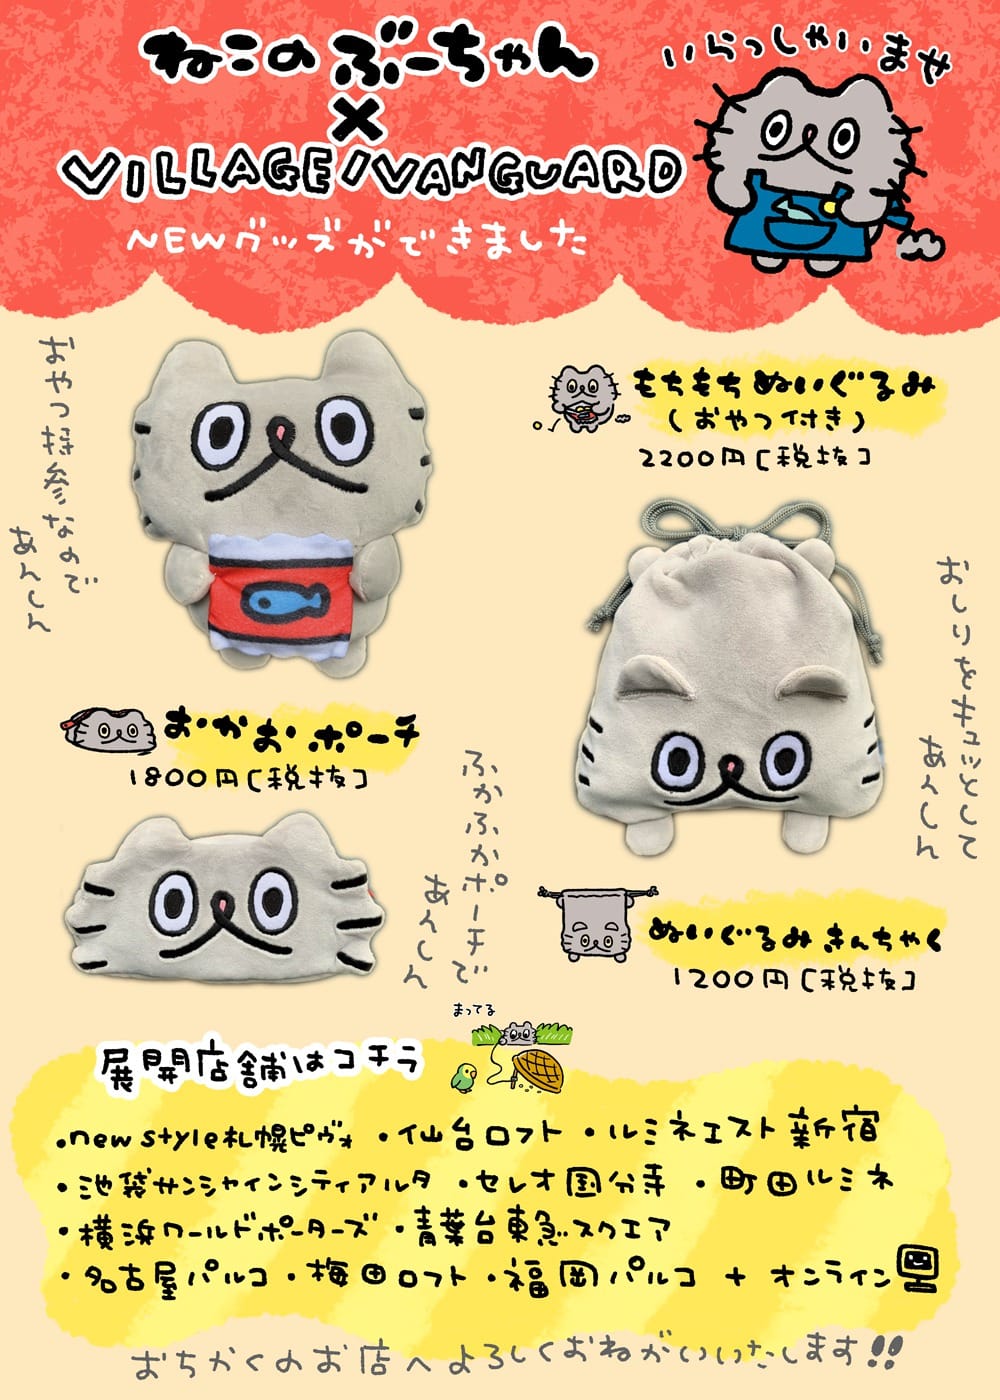 ねこのぶーちゃん
×
VILLAGE/VANGUARD
NEWグッズができました
いらっしゃいませ
おやつ持参なので
あんしん
もちもちぬいぐるみ
(おやつ付き)
2200円[税抜]
おしりをキュッとして
あんしん
おかおポーチ
1800円[税抜]
ふかふかポーチで
あんしん
ぬいぐるみきんちゃく
1200円[税抜]
まってる
展開店舗はコチラ
・new style札幌ピヴォ ・仙台ロフト ・ルミネエスト新宿
・池袋サンシャインシティアルタ ・セレオ国分寺 ・町田ルミネ
・横浜ワールドポーターズ ・青葉台東急スクエア
・名古屋パルコ ・梅田ロフト ・福岡パルコ + オンライン
おちかくのお店へよろしくおねがいいたします!!